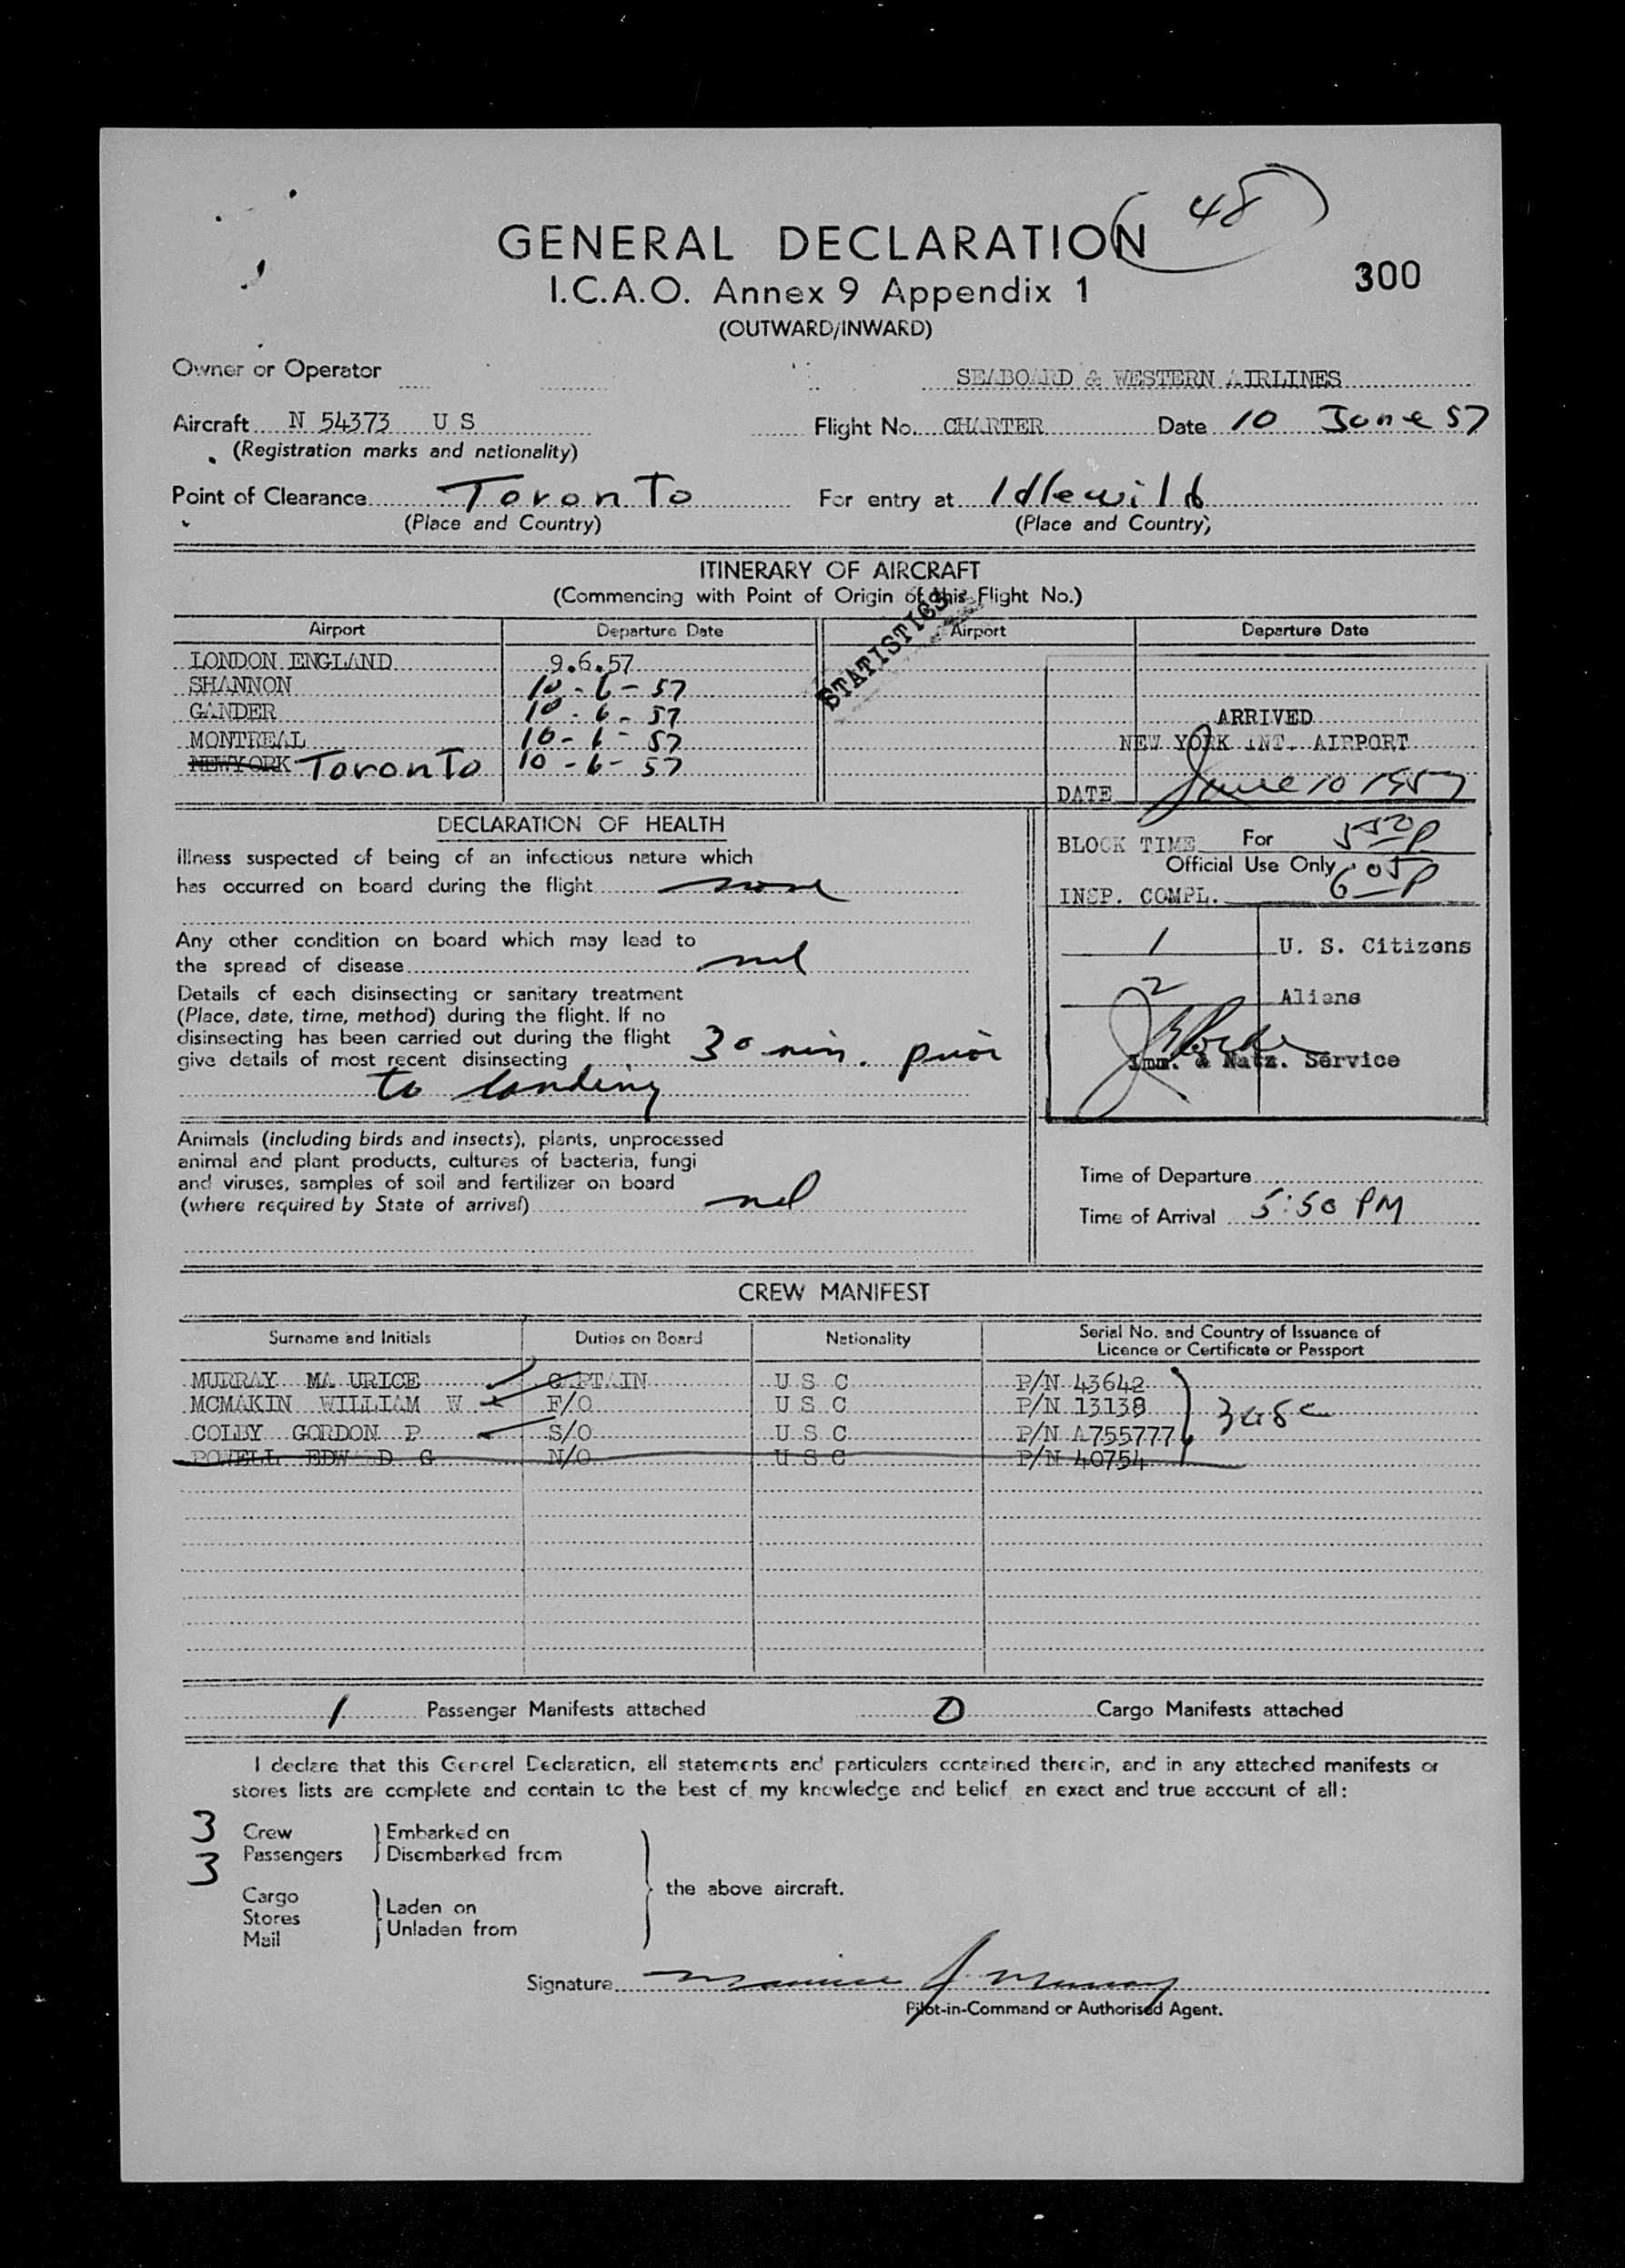 48
GENERAL DECLARATION
I.C.A.O. Annex 9 Appendix 1
300
(OUTWARD/INWARD)
Owner or Operator SEABOARD & WESTERN AIRLINES
Aircraft N 54373 U S Flight No. CHARTER Date 10 June 57
(Registration marks and nationality)
Point of Clearance Toronto For entry at Idlewild
(Place and Country) (Place and Country)
ITINERARY OF AIRCRAFT
(Commencing with Point of Origin of this Flight No.)
STATISTICS
Airport Departure Date Airport Departure Date
LONDON ENGLAND 9.6.57
SHANNON 10-6-57
GANDER 10-6-57
MONTREAL 10-6-57
NEWYORK Toronto 10-6-57
ARRIVED
NEW YORK INT. AIRPORT
DATE June 10 1957
BLOCK TIME 550p
For
Official Use Only
INSP. COMPL. 605p
1 U. S. Citizens
2 Aliens
Imm. & Natz. Service
DECLARATION OF HEALTH
Illness suspected of being of an infectious nature which
has occurred on board during the flight none
Any other condition on board which may lead to
the spread of disease nil
Details of each disinsecting or sanitary treatment
(Place, date, time, method) during the flight. If no
disinsecting has been carried out during the flight
give details of most recent disinsecting 30 min. prior
to landing
Animals (including birds and insects), plants, unprocessed
animal and plant products, cultures of bacteria, fungi
and viruses, samples of soil and fertilizer on board
(where required by State of arrival) nil
Time of Departure
Time of Arrival 5:50 PM
CREW MANIFEST
Surname and Initials Duties on Board Nationality Serial No. and Country of Issuance of
Licence or Certificate or Passport
MURRAY MA URICE C PTAIN U S C P/N 43642
MCMAKIN WILLIAM W F/O U S C P/N 13138
COLBY GORDON P S/O U S C P/N A755777
POWELL EDW D G N/O U S C P/N 40754
1 Passenger Manifests attached 0 Cargo Manifests attached
I declare that this General Declaration, all statements and particulars contained therein, and in any attached manifests or
stores lists are complete and contain to the best of my knowledge and belief an exact and true account of all:
3 Crew } Embarked on
3 Passengers } Disembarked from
the above aircraft.
Cargo
Stores } Laden on
Mail } Unladen from
Signature Maurice J. Murray
Pilot-in-Command or Authorised Agent.